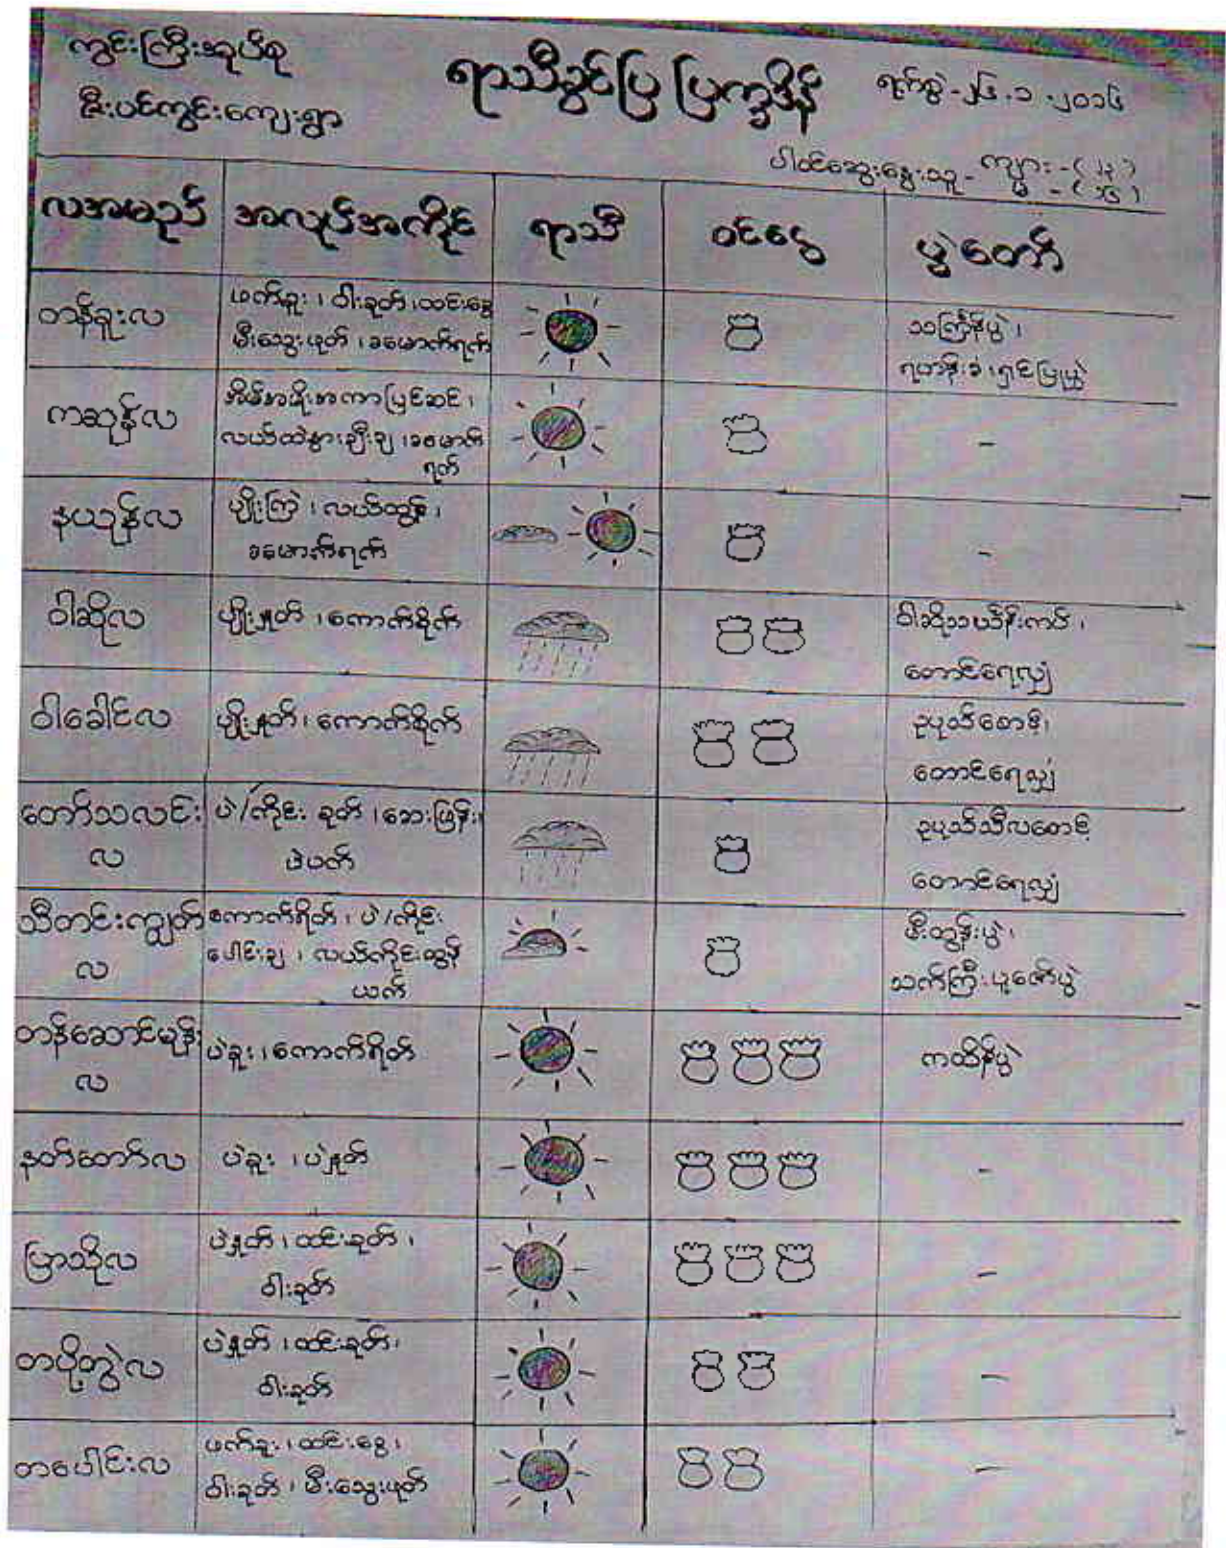 ကွင်းကြီးအုပ်စု
ဦးပင်ကွင်းကျေးရွာ
ရာသီခွင်ပြ ပြက္ခဒိန်
ရက်စွဲ-၂၆.၁.၂၀၁၆
ပါဝင်ဆွေးနွေးသူ-ကျား-(၂၃)
မ-(၁၆)
လအမည် အလုပ်အကိုင် ရာသီ ဝင်ငွေ ပွဲတော်
တန်ခူးလ
ဖက်ခူး၊ ဝါးခုတ်၊ ထင်းခွေ
မီးသွေးဖုတ်၊ ခမောက်ရက်
သင်္ကြန်ပွဲ၊
ရဟန်းခံ၊ ရှင်ပြုပွဲ
ကဆုန်လ
အိမ်အမိုးအကာပြင်ဆင်၊
လယ်ထဲနွားချီးချ၊ ခမောက်
ရက်
-
နယုန်လ
ပျိုးကြဲ၊ လယ်ထွန်၊
ခမောက်ရက်
-
ဝါဆိုလ
ပျိုးနှုတ်၊ ကောက်စိုက်
ဝါဆိုသင်္ကန်းကပ်၊
တောင်ရေလျှံ
ဝါခေါင်လ
ပျိုးနှုတ်၊ ကောက်စိုက်
ဥပုသ်စောင့်၊
တောင်ရေလျှံ
တော်သလင်း
လ
ပဲ/ကိုင်း ခုတ်၊ ဆေးဖြန်း၊
ပဲပတ်
ဥပုသ်သီလစောင့်
တောင်ရေလျှံ
သီတင်းကျွတ်
လ
ကောက်ရိတ်၊ ပဲ/ကိုင်း
ပေါင်းချ၊ လယ်ကိုင်းထွန်
ယက်
မီးထွန်းပွဲ၊
သက်ကြီးပူဇော်ပွဲ
တန်ဆောင်မုန်း
လ
ပဲခူး၊ ကောက်ရိတ်
ကထိန်ပွဲ
နတ်တော်လ
ပဲခူး၊ ပဲနှုတ်
-
ပြာသိုလ
ပဲနှုတ်၊ ထင်းခုတ်၊
ဝါးခုတ်
-
တပို့တွဲလ
ပဲနှုတ်၊ ထင်းခုတ်၊
ဝါးခုတ်
-
တပေါင်းလ
ဖက်ခူး၊ ထင်းခွေ၊
ဝါးခုတ်၊ မီးသွေးဖုတ်
-